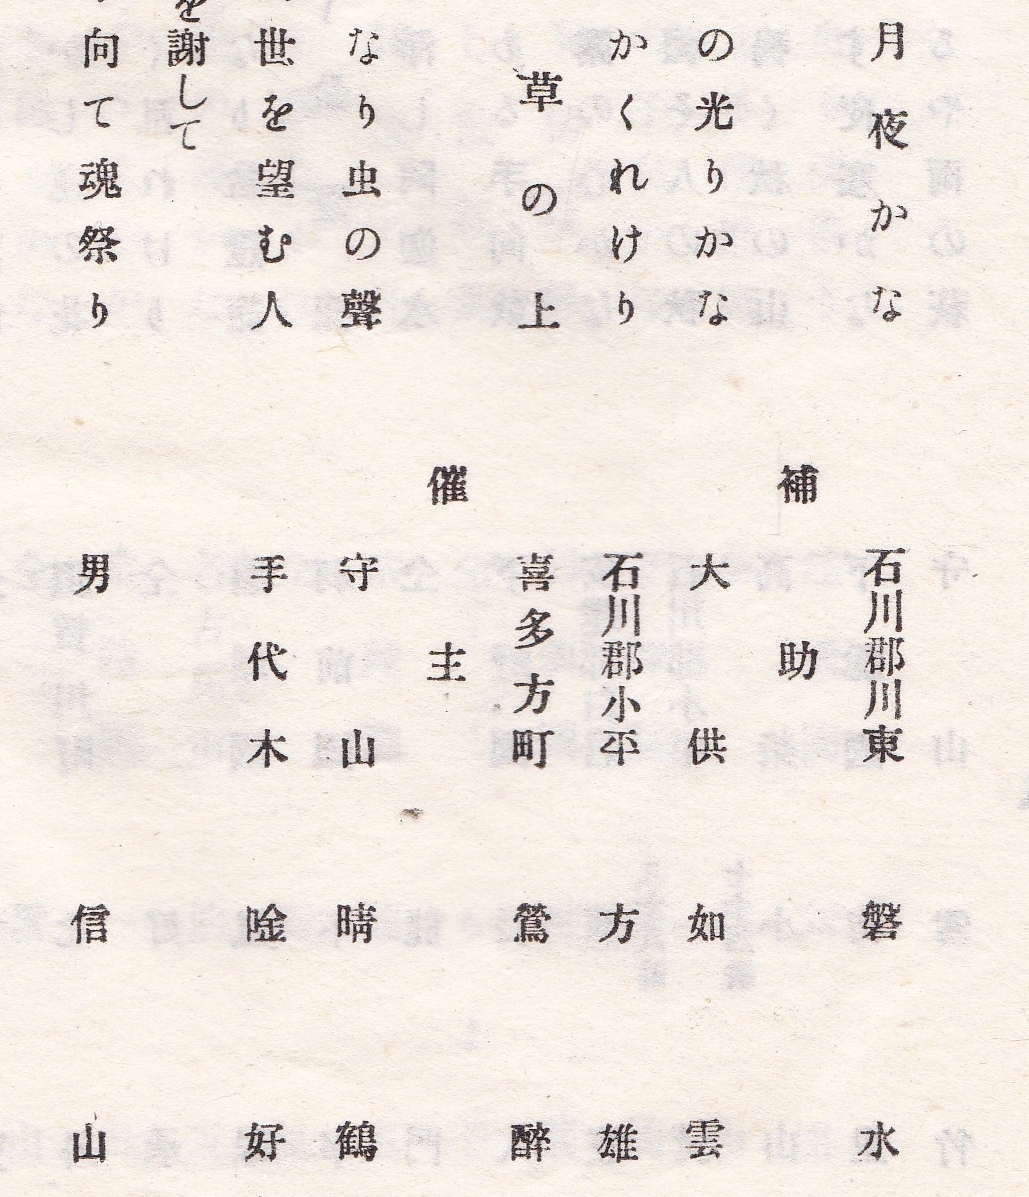 月夜かな 石川郡川東 磐水
補助
の光りかな 大供 如雲
かくれけり 石川郡小平 方雄
草の上 喜多方町 鶯醉
催主
なり虫の聲 守山 晴鶴
世を望む人 手代木 唫好
を謝して
向て魂祭り 男 信山